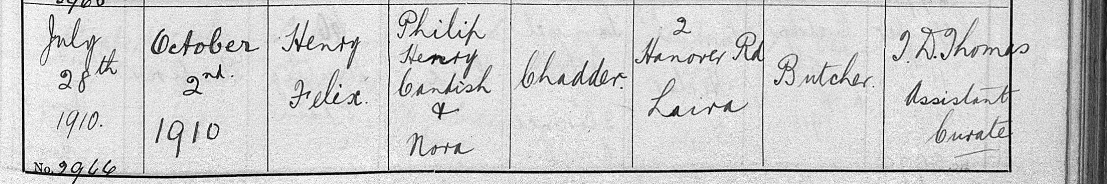 July
28th
1910.
No. 2966
October
2nd.
1910
Henry
Felix.
Philip
Henry
Candish
&
Nora
Chadder.
2
Hanover Rd
Laira
Butcher.
T. D. Thomas
Assistant
Curate